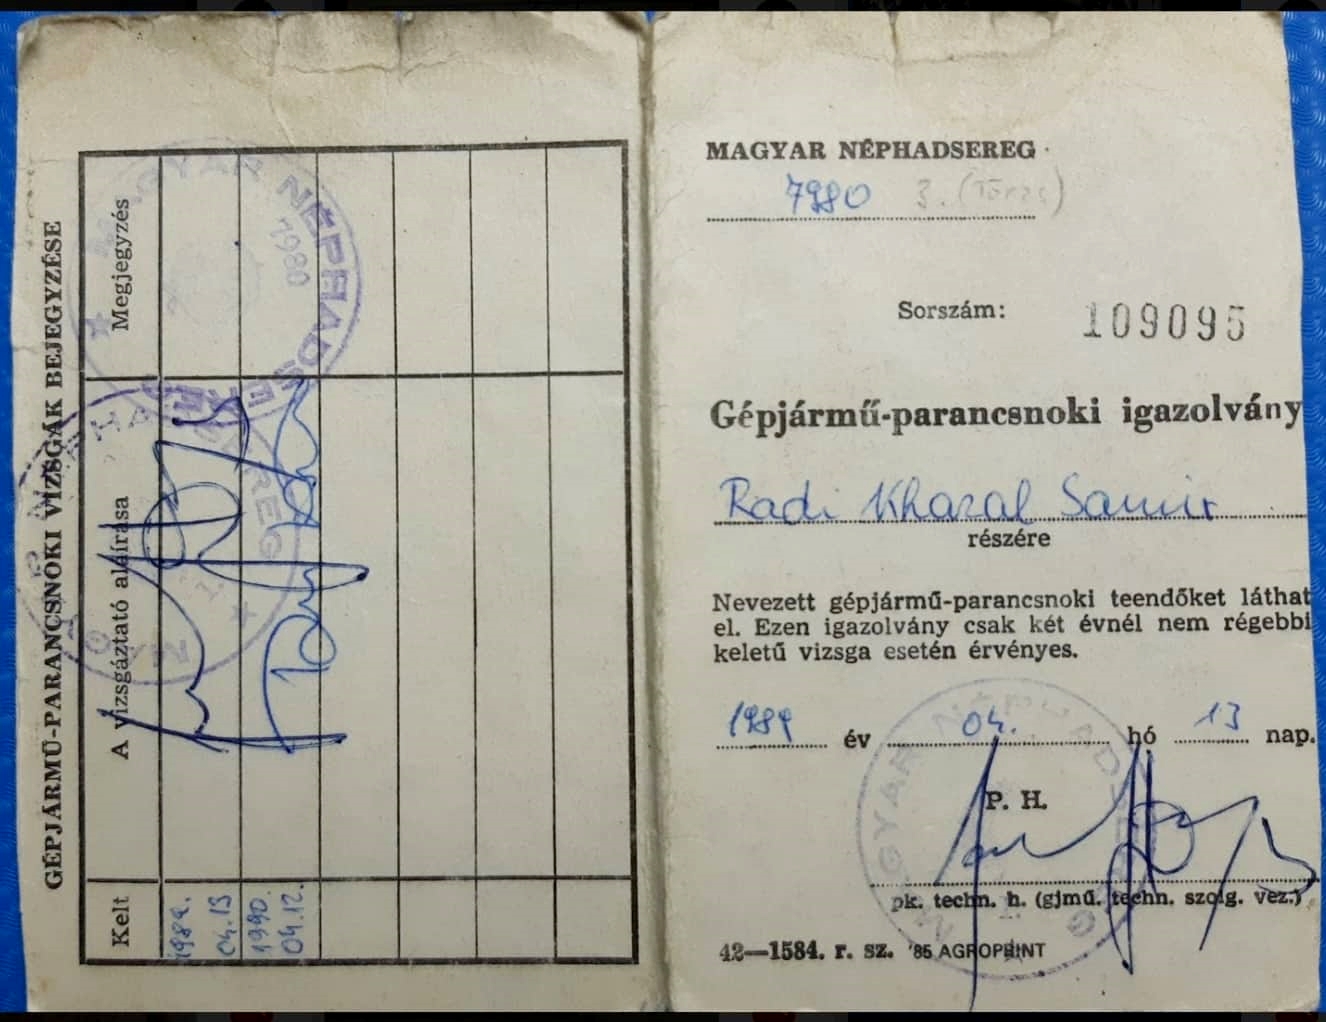 GÉPJÁRMŰ-PARANCSNOKI VIZSGÁK BEJEGYZÉSE
Kelt
A vizsgáztató aláírása
Megjegyzés
1989.
04.13
1990.
04.12.
MAGYAR NÉPHADSEREG
7980
MAGYAR NÉPHADSEREG
7980 3. (Törzs)
Sorszám: 109095
Gépjármű-parancsnoki igazolvány
Radi Khazal Samir
részére
Nevezett gépjármű-parancsnoki teendőket láthat
el. Ezen igazolvány csak két évnél nem régebbi
keletű vizsga esetén érvényes.
1989 év 04. hó 13 nap.
P. H.
MAGYAR NÉPHADSEREG
pk. techn. h. (gjmű. techn. szolg. vez.)
42—1584. r. sz. '85 AGROPRINT